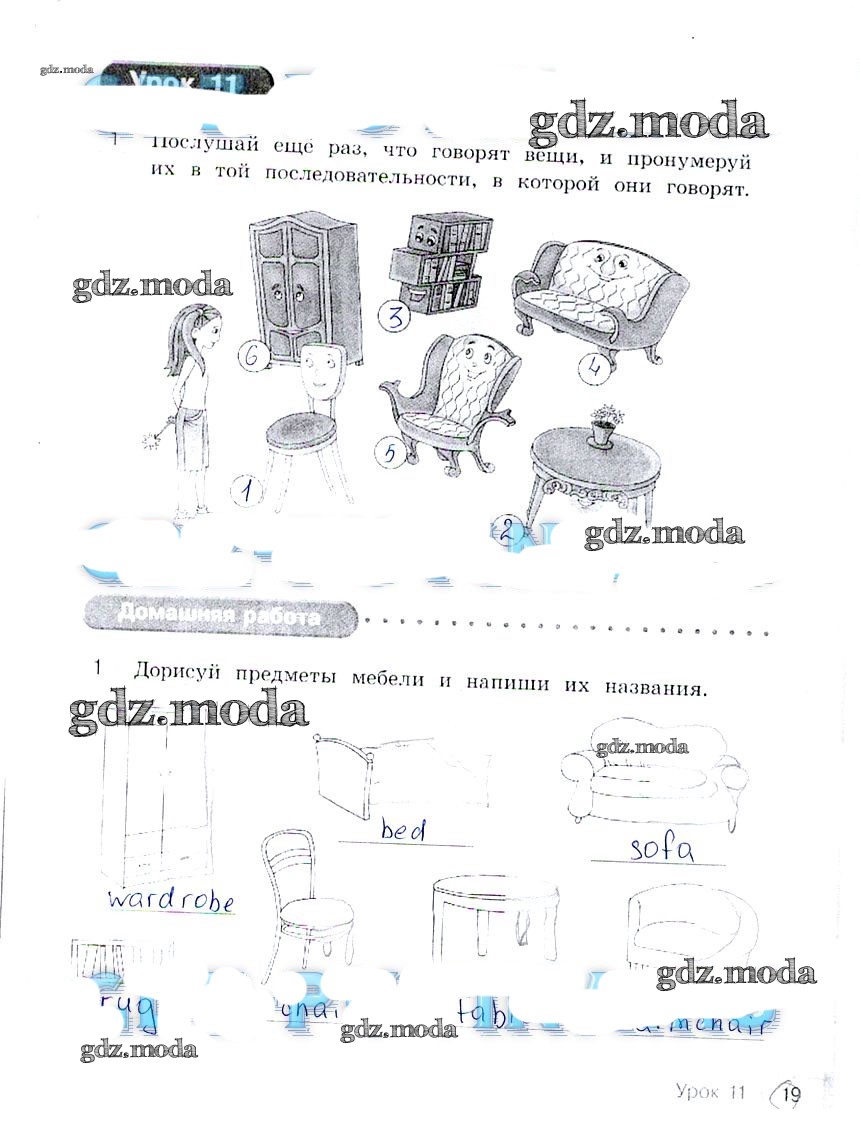 gdz.moda
Урок 11
gdz.moda
1 Послушай ещё раз, что говорят вещи, и пронумеруй
их в той последовательности, в которой они говорят.
gdz.moda
3
6
4
5
1
2
gdz.moda
Домашняя работа
1 Дорисуй предметы мебели и напиши их названия.
gdz.moda
gdz.moda
bed
sofa
wardrobe
gdz.moda
rug
gdz.moda
gdz.moda
Урок 11 19